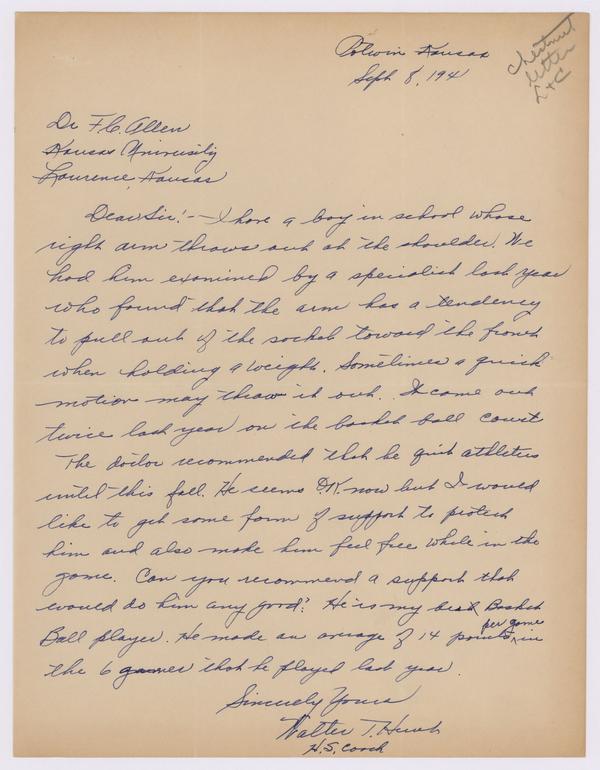 Potwin Kansas
Sept 8, 1941
Chestnut
letter
L+C
Dr F.C. Allen
Kansas University
Lawrence, Kansas
Dear Sir:-- I have a boy in school whose
right arm throws out at the shoulder. We
had him examined by a specialist last year
who found that the arm has a tendency
to pull out of the socket toward the front
when holding a weight. Sometimes a quick
motion may throw it out. It came out
twice last year on the basket ball court
The doctor recommended that he quit athletics
until this fall. He seems O.K. now but I would
like to get some form of support to protect
him and also make him feel free while in the
game. Can you recommend a support that
would do him any good? He is my best Basket
Ball player. He made an avrage of 14 points per game in
the 6 games that he played last year.
Sincerely Yours
Walter T.
H.S. Coach